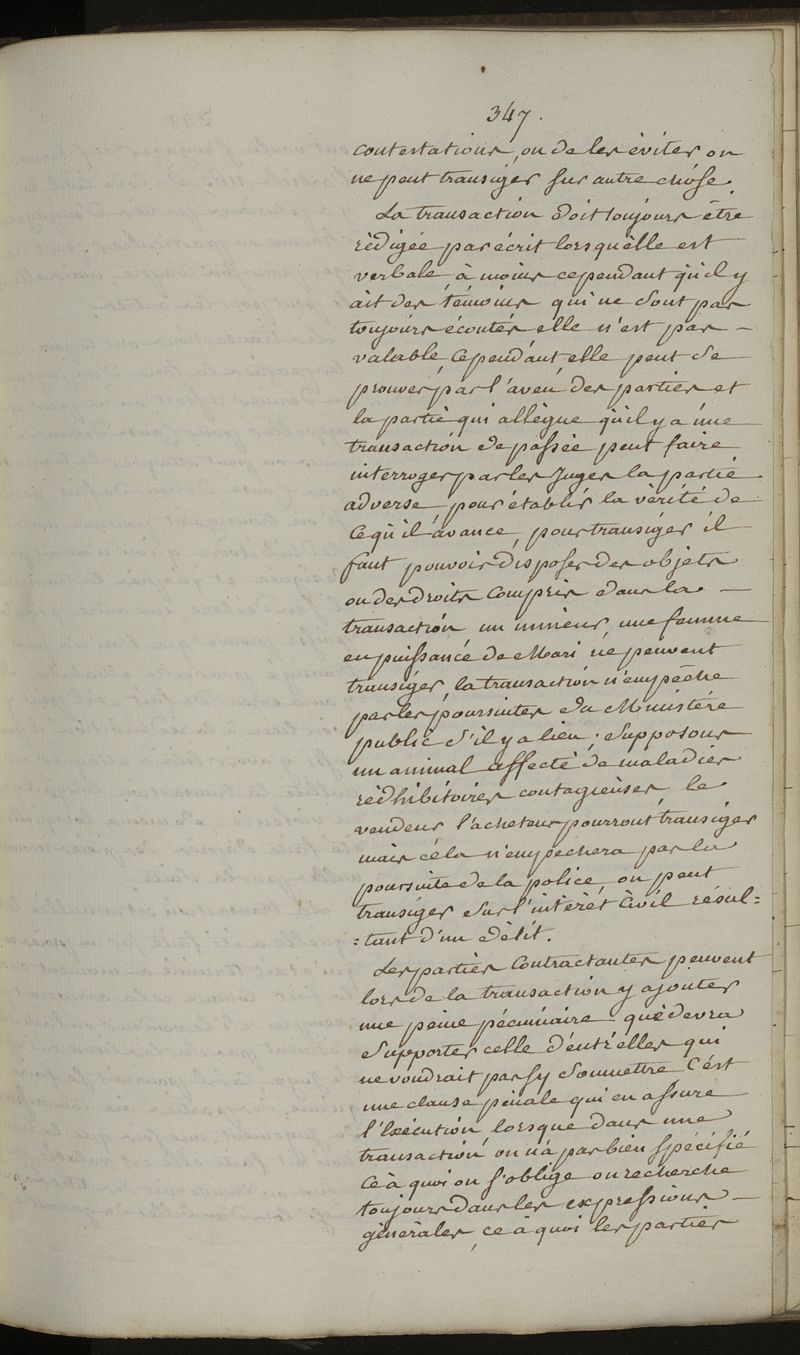 347.
contestations, ou de les éviter on
ne peut transiger sur autre chose.
La transaction doit toujours être
rédigée par écrit lorsqu'èlle est
verbale, à moins cependant qu'il y
ait des témoins qui ne sont pas
toujours écoutés elle n'est pas –
valable, Cependant elle peut se
prouver par l'aveu des parties et
la partie qui allègue qu'il y a une
transaction de passée peut faire
interroger par les Juges la partie
adverse pour établir la vérité de
Ce qu'il avance, pour transiger il
faut pouvoir disposer des objets
ou des droits Compris dans la –
transaction un mineur, une femme
en puissance de Mari ne peuvent
transiger, la transaction n'empêche
pas les poursuites du Ministére
public s'il y a lieu; Supposons
un animal affecté de maladies
rédhibitoires contagieuses, le
vendeur l'acheteur pourront transiger
mais céla n'empechera pas la
poursuite de la police, on peut
transiger sur l'intérêt Civil résul=
=tant d'un délit.
Les parties Contractantes peuvent
lors de la transaction y ajouter
une peine pécuniaire que devra
Supporter celle d'entr'elles qui
ne voudrait pas sy Soumettre C'est
une clause pénale qui en assure
l'Exécution, lorsque dans une
transaction on n'a pas bien spécifié
Ce à quoi on s'oblige on recherche
toujours dans les expressions –
générales, ce à quoi les parties